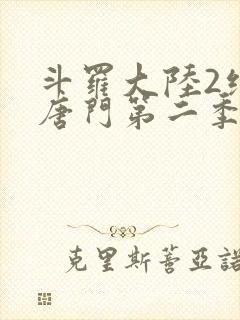 斗羅大陸2
唐門第二季
克里斯蒂亞諾